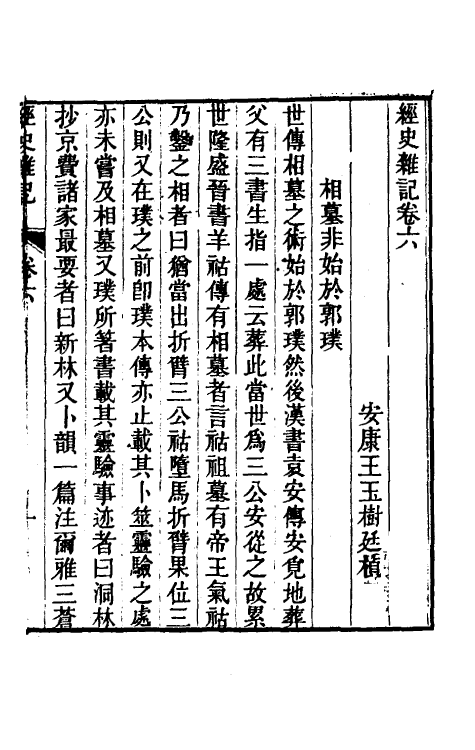 經史雜記卷六
安康王玉樹廷楨
相墓非始於郭璞
世傳相墓之術始於郭璞然後漢書袁安傳安覓地葬
父有三書生指一處云葬此當世爲三公安從之故累
世隆盛晉書羊祜傳有相墓者言祜祖墓有帝王氣祜
乃鑿之相者曰猶當出折臂三公祜墮馬折臂果位三
公則又在璞之前卽璞本傳亦止載其卜筮靈驗之處
亦未嘗及相墓又璞所著書載其靈驗事迹者曰洞林
抄京費諸家最要者曰新林又卜韻一篇注爾雅三蒼
經史雜記 卷六 一